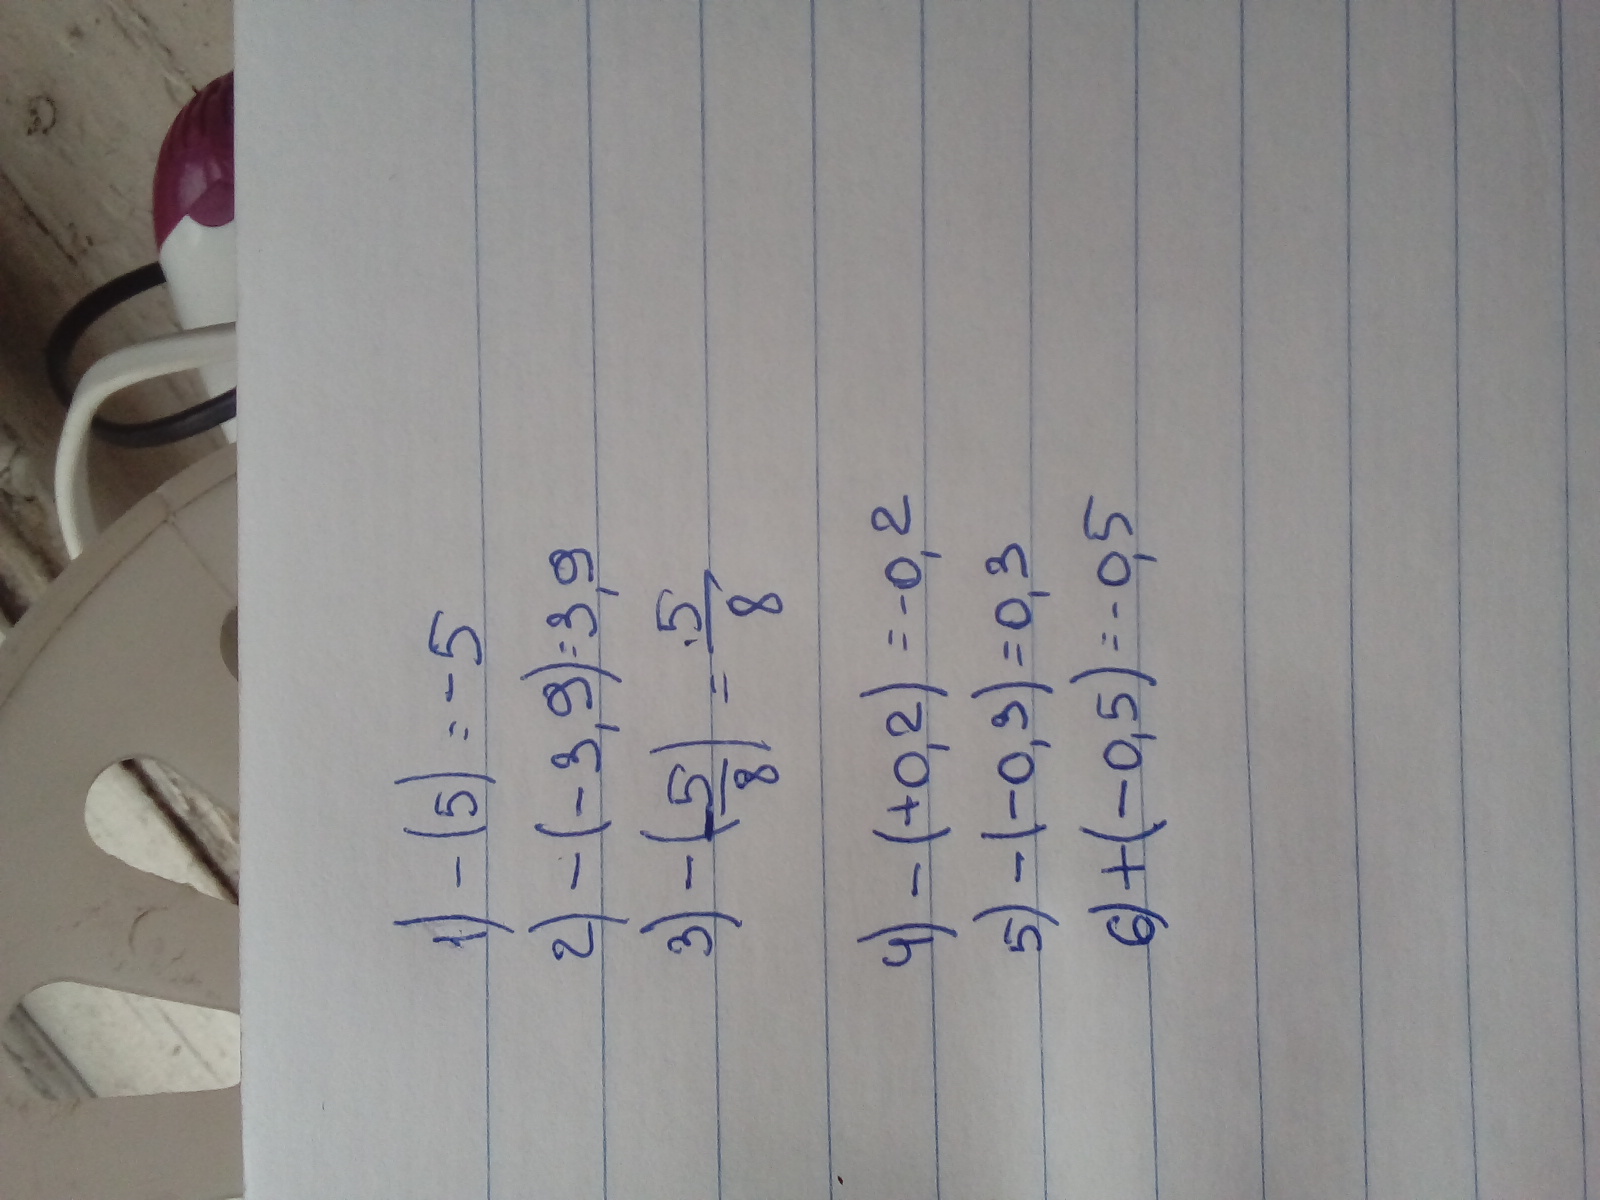 1) -(5) = -5
2) -(-3,9) = 3,9
3) -(-5/8) = 5/8
4) -(+0,2) = -0,2
5) -(-0,3) = 0,3
6) +(-0,5) = -0,5